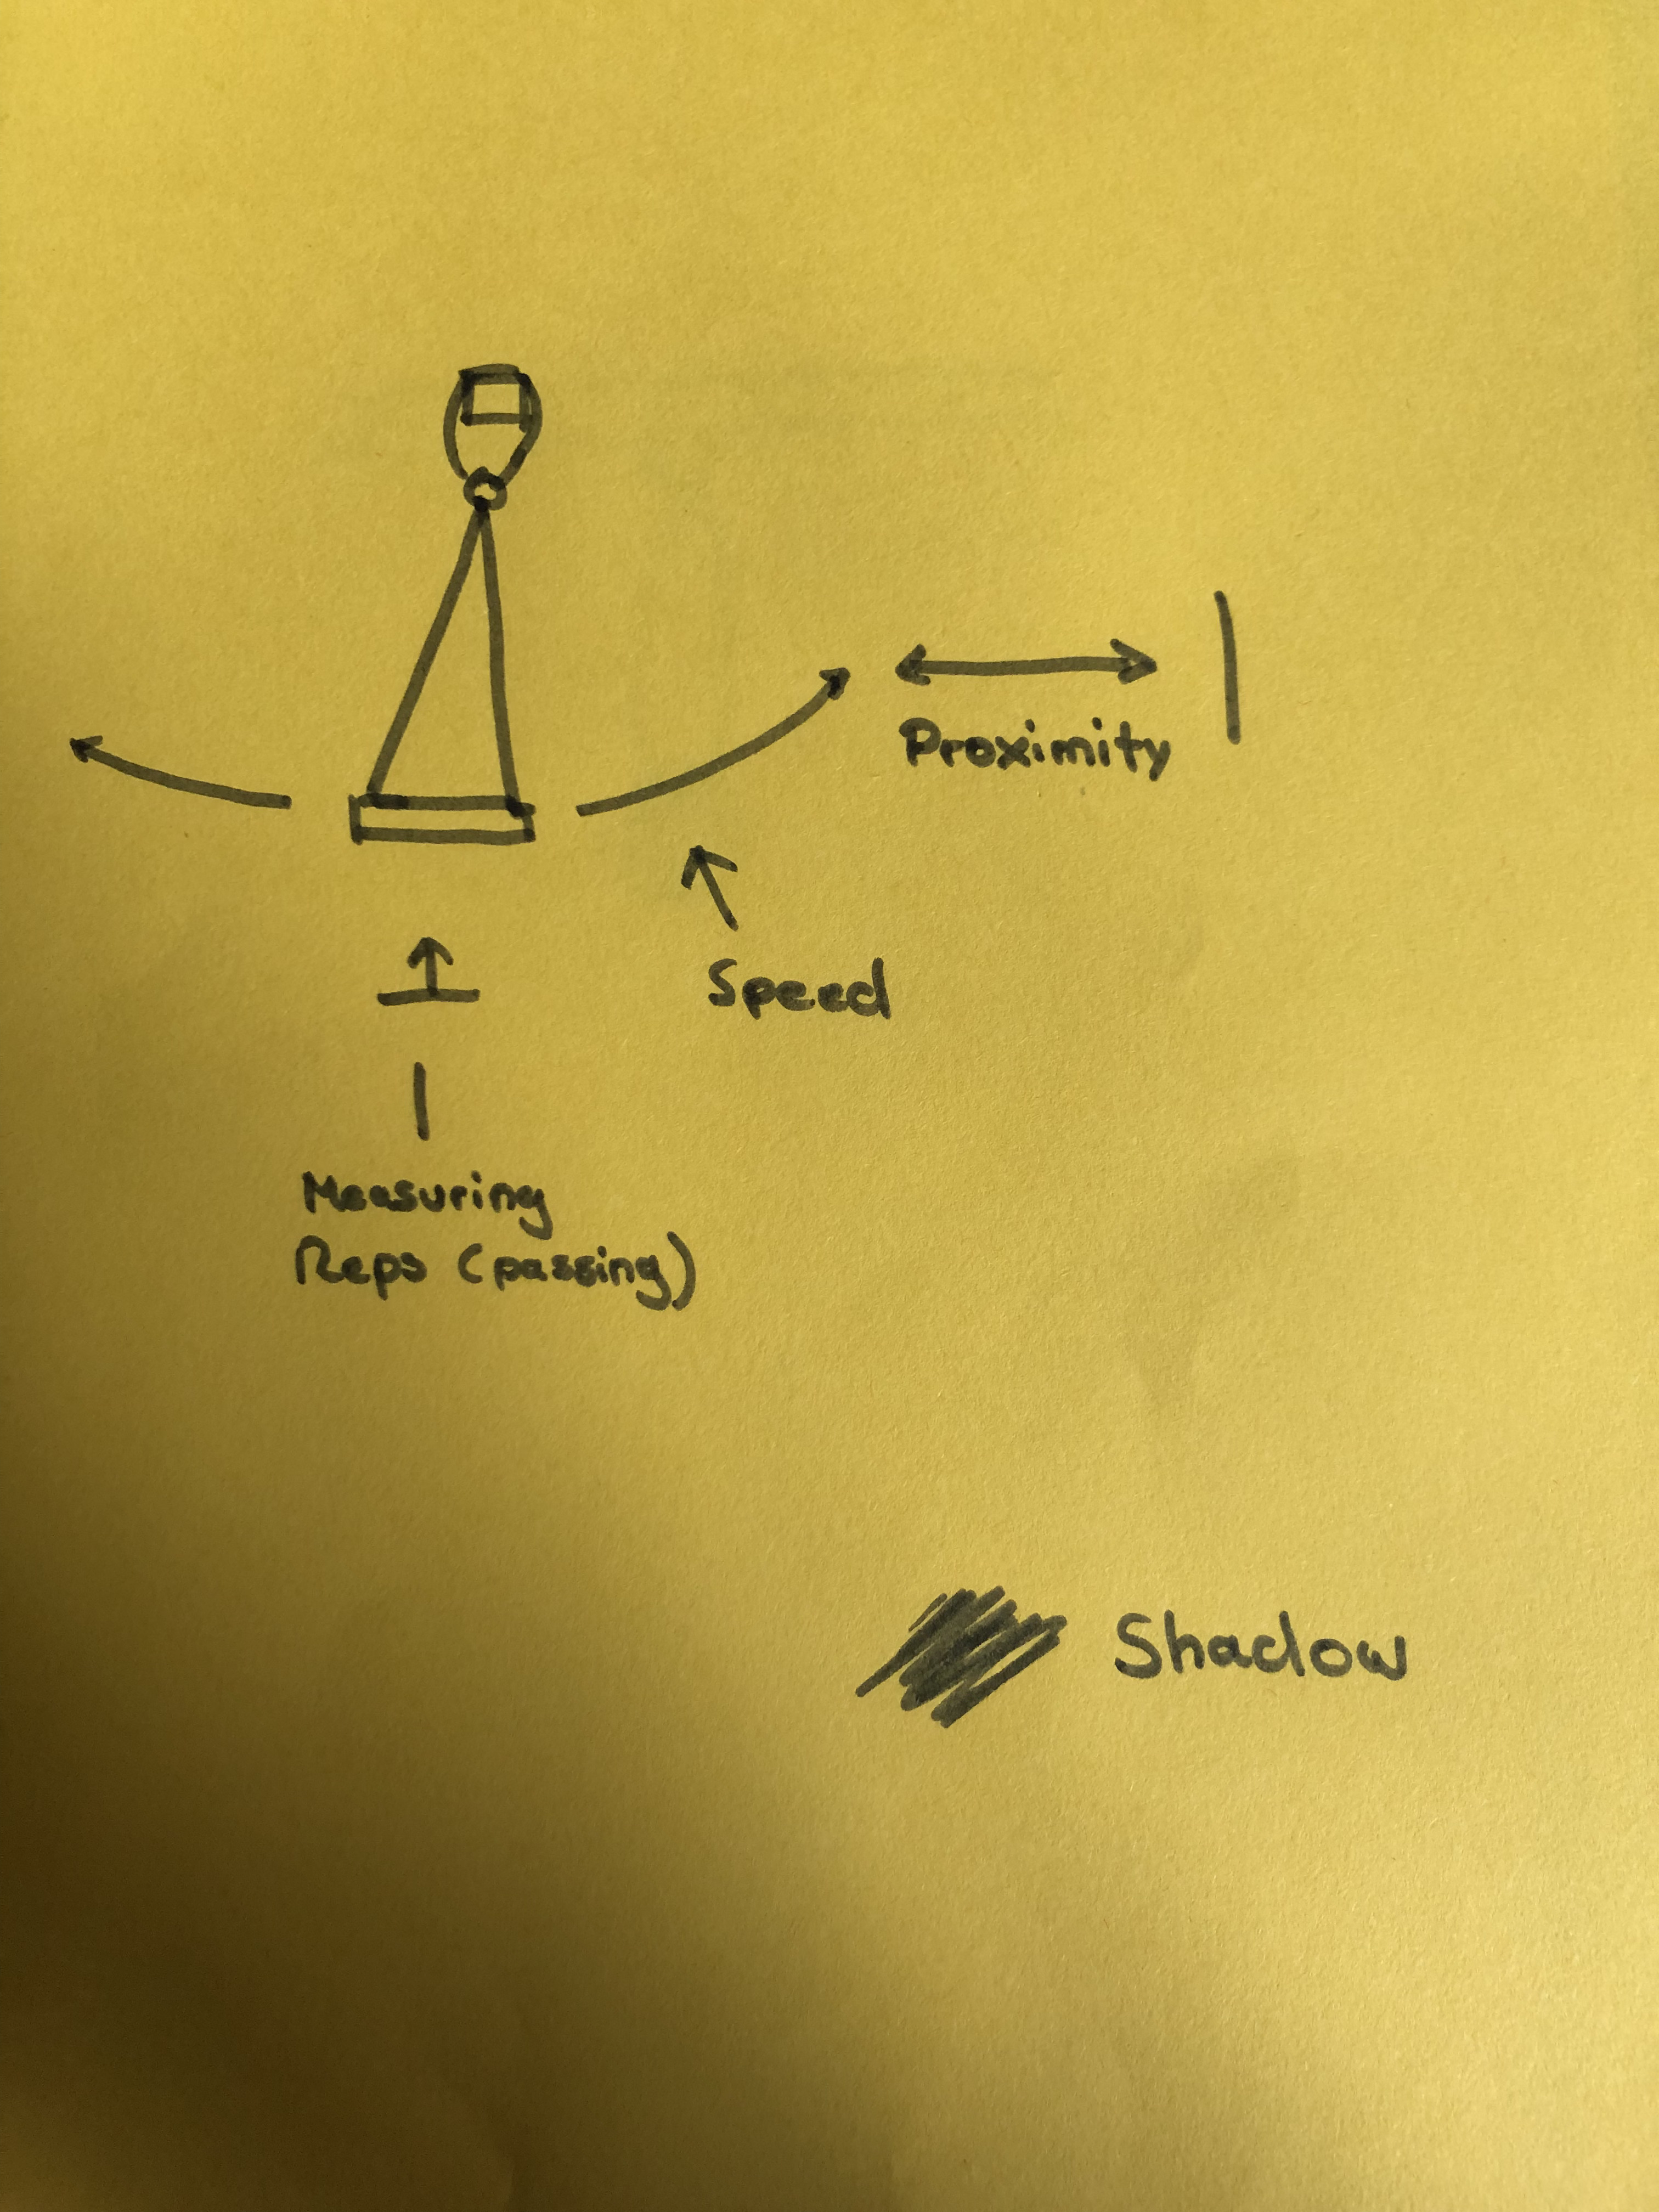 Proximity
Speed
Measuring
Reps (passing)
Shadow